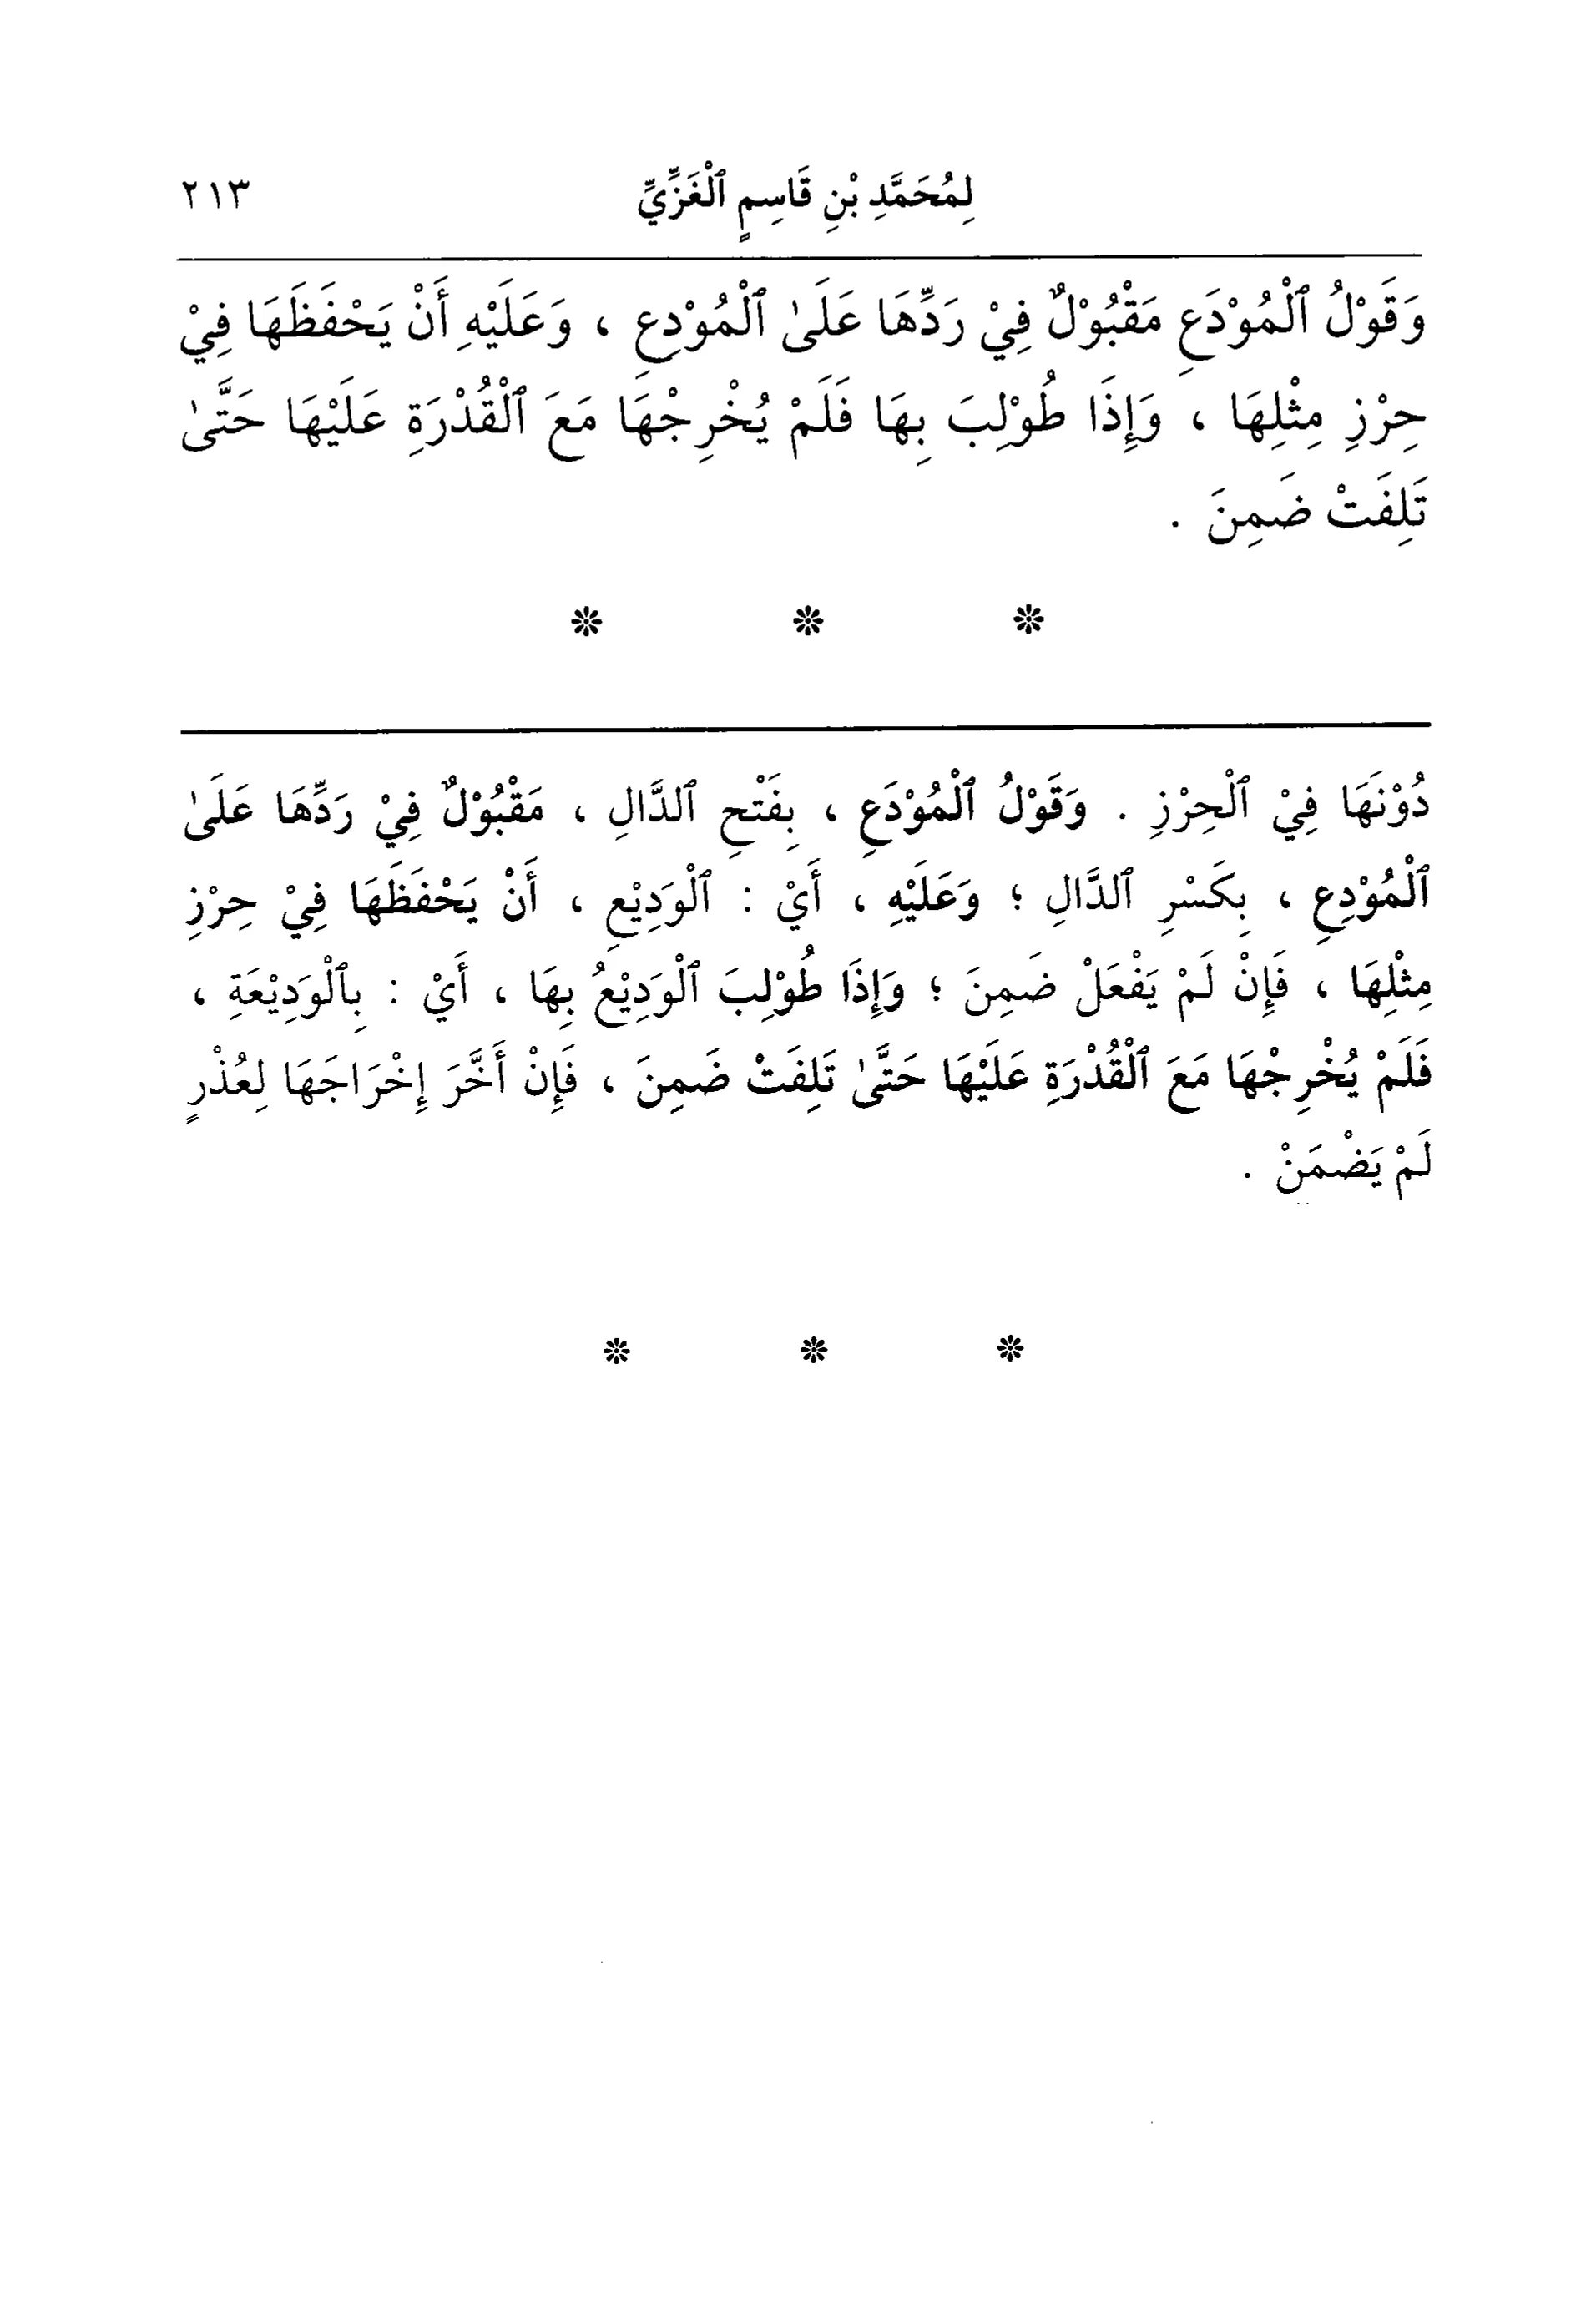 لِمُحَمَّدِ بْنِ قَاسِمٍ ٱلْغَزِّيِّ ٢١٣
وَقَوْلُ ٱلْمُوْدَعِ مَقْبُوْلٌ فِيْ رَدِّهَا عَلَىٰ ٱلْمُوْدِعِ ، وَعَلَيْهِ أَنْ يَحْفَظَهَا فِيْ
حِرْزِ مِثْلِهَا ، وَإِذَا طُوْلِبَ بِهَا فَلَمْ يُخْرِجْهَا مَعَ ٱلْقُدْرَةِ عَلَيْهَا حَتَّىٰ
تَلِفَتْ ضَمِنَ .
دُوْنَهَا فِيْ ٱلْحِرْزِ . وَقَوْلُ ٱلْمُوْدَعِ ، بِفَتْحِ ٱلدَّالِ ، مَقْبُوْلٌ فِيْ رَدِّهَا عَلَىٰ
ٱلْمُوْدِعِ ، بِكَسْرِ ٱلدَّالِ ؛ وَعَلَيْهِ ، أَيْ : ٱلْوَدِيْعِ ، أَنْ يَحْفَظَهَا فِيْ حِرْزِ
مِثْلِهَا ، فَإِنْ لَمْ يَفْعَلْ ضَمِنَ ؛ وَإِذَا طُوْلِبَ ٱلْوَدِيْعُ بِهَا ، أَيْ : بِٱلْوَدِيْعَةِ ،
فَلَمْ يُخْرِجْهَا مَعَ ٱلْقُدْرَةِ عَلَيْهَا حَتَّىٰ تَلِفَتْ ضَمِنَ ، فَإِنْ أَخَّرَ إِخْرَاجَهَا لِعُذْرٍ
لَمْ يَضْمَنْ .